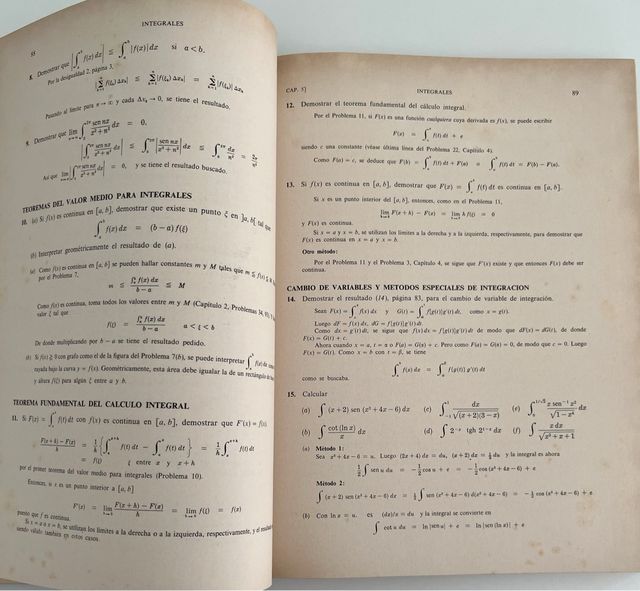 INTEGRALES
8. Demostrar que |∫ₐᵇ f(x) dx| ≦ ∫ₐᵇ |f(x)| dx si a < b.
Por la desigualdad 2, página 3,
Pasando al límite para n → ∞ y cada Δxₖ → 0, se tiene el resultado.
9. Demostrar que lim ∫₀²π sen nx / x² + n² dx = 0.
Así que = 0, y se tiene el resultado buscado.
TEOREMAS DEL VALOR MEDIO PARA INTEGRALES
10. (a) Si f(x) es continua en [a, b], demostrar que existe un punto ξ en ]a, b[ tal que
∫ₐᵇ f(x) dx = (b − a) f(ξ)
(b) Interpretar geométricamente el resultado de (a).
(a) Como f(x) es continua en [a, b] se pueden hallar constantes m y M tales que m ≦ f(x) ≦
por el Problema 7,
m ≦ ∫ₐᵇ f(x) dx / b − a ≦ M
Como f(x) es continua, toma todos los valores entre m y M (Capítulo 2, Problemas 34,
valor ξ tal que
f(ξ) = ∫ₐᵇ f(x) dx / b − a a < ξ < b
De donde multiplicando por b − a se tiene el resultado pedido.
(b) Si f(x) ≧ 0 con grafo como el de la figura del Problema 7(b), se puede interpretar ∫ₐᵇ f(x) dx
rayada bajo la curva y = f(x). Geométricamente, esta área debe igualar la de un rectángulo de
y altura f(ξ) para algún ξ entre a y b.
TEOREMA FUNDAMENTAL DEL CALCULO INTEGRAL
11. Si F(x) = ∫ₐˣ f(t) dt con f(x) es continua en [a, b], demostrar que F'(x) = f(x).
F(x + h) − F(x) / h = 1/h { ∫ₐˣ⁺ʰ f(t) dt − ∫ₐˣ f(t) dt } = 1/h ∫ₓˣ⁺ʰ f(t) dt
= f(ξ) ξ entre x y x + h
por el primer teorema del valor medio para integrales (Problema 10).
Entonces, si x es un punto interior de [a, b]
F'(x) = lim F(x + h) − F(x) / h = lim f(ξ) = f(x)
puesto que f es continua.
Si x = a o x = b, se utilizan los límites a la derecha o a la izquierda, respectivamente, y el
siendo válido también en estos casos.
CAP. 5] INTEGRALES 89
12. Demostrar el teorema fundamental del cálculo integral.
Por el Problema 11, si F(x) es una función cualquiera cuya derivada es f(x), se puede escribir
F(x) = ∫ₐˣ f(t) dt + c
siendo c una constante (véase última línea del Problema 22, Capítulo 4).
Como F(a) = c, se deduce que F(b) = ∫ₐᵇ f(t) dt + F(a) o ∫ₐᵇ f(t) dt = F(b) − F(a).
13. Si f(x) es continua en [a, b], demostrar que F(x) = ∫ₐˣ f(t) dt es continua en [a, b].
Si x es un punto interior del [a, b], entonces, como en el Problema 11,
lim F(x + h) − F(x) = lim h f(ξ) = 0
y F(x) es continua.
Si x = a y x = b, se utilizan los límites a la derecha y a la izquierda, respectivamente, para demostrar que
F(x) es continua en x = a y x = b.
Otro método:
Por el Problema 11 y el Problema 3, Capítulo 4, se sigue que F'(x) existe y que entonces F(x) debe ser
continua.
CAMBIO DE VARIABLES Y METODOS ESPECIALES DE INTEGRACION
14. Demostrar el resultado (14), página 83, para el cambio de variable de integración.
Sean F(x) = ∫ₐˣ f(x) dx y G(t) = ∫ f[g(t)] g'(t) dt, como x = g(t).
Luego dF = f(x) dx, dG = f[g(t)] g'(t) dt.
Como dx = g'(t) dt, se sigue que f(x) dx = f[g(t)] g'(t) dt de modo que dF(x) = dG(t), de donde
F(x) = G(t) + c.
Ahora cuando x = a, t = α o F(a) = G(α) + c. Pero como F(a) = G(α) = 0, de modo que c = 0. Luego
F(x) = G(t). Como x = b con t = β, se tiene
∫ₐᵇ f(x) dx = ∫ f[g(t)] g'(t) dt
como se buscaba.
15. Calcular
(a) ∫ (x + 2) sen (x² + 4x − 6) dx (c) ∫₋₁¹ dx / √(x + 2)(3 − x) (e) ∫₀^1/√2 x sen⁻¹ x² / √1 − x⁴ dx
(b) ∫ cot (ln x) / x dx (d) ∫ 2⁻ˣ tgh 2¹⁻ˣ dx (f) ∫ x dx / √x² + x + 1
(a) Método 1:
Sea x² + 4x − 6 = u. Luego (2x + 4) dx = du, (x + 2) dx = ½ du y la integral es ahora
½ ∫ sen u du = −½ cos u + c = −½ cos (x² + 4x − 6) + c
Método 2:
∫ (x + 2) sen (x² + 4x − 6) dx = ½ ∫ sen (x² + 4x − 6) d(x² + 4x − 6) = −½ cos (x² + 4x − 6) + c
(b) Con ln x = u. es (dx)/x = du y la integral se convierte en
∫ cot u du = ln |sen u| + c = ln |sen (ln x)| + c